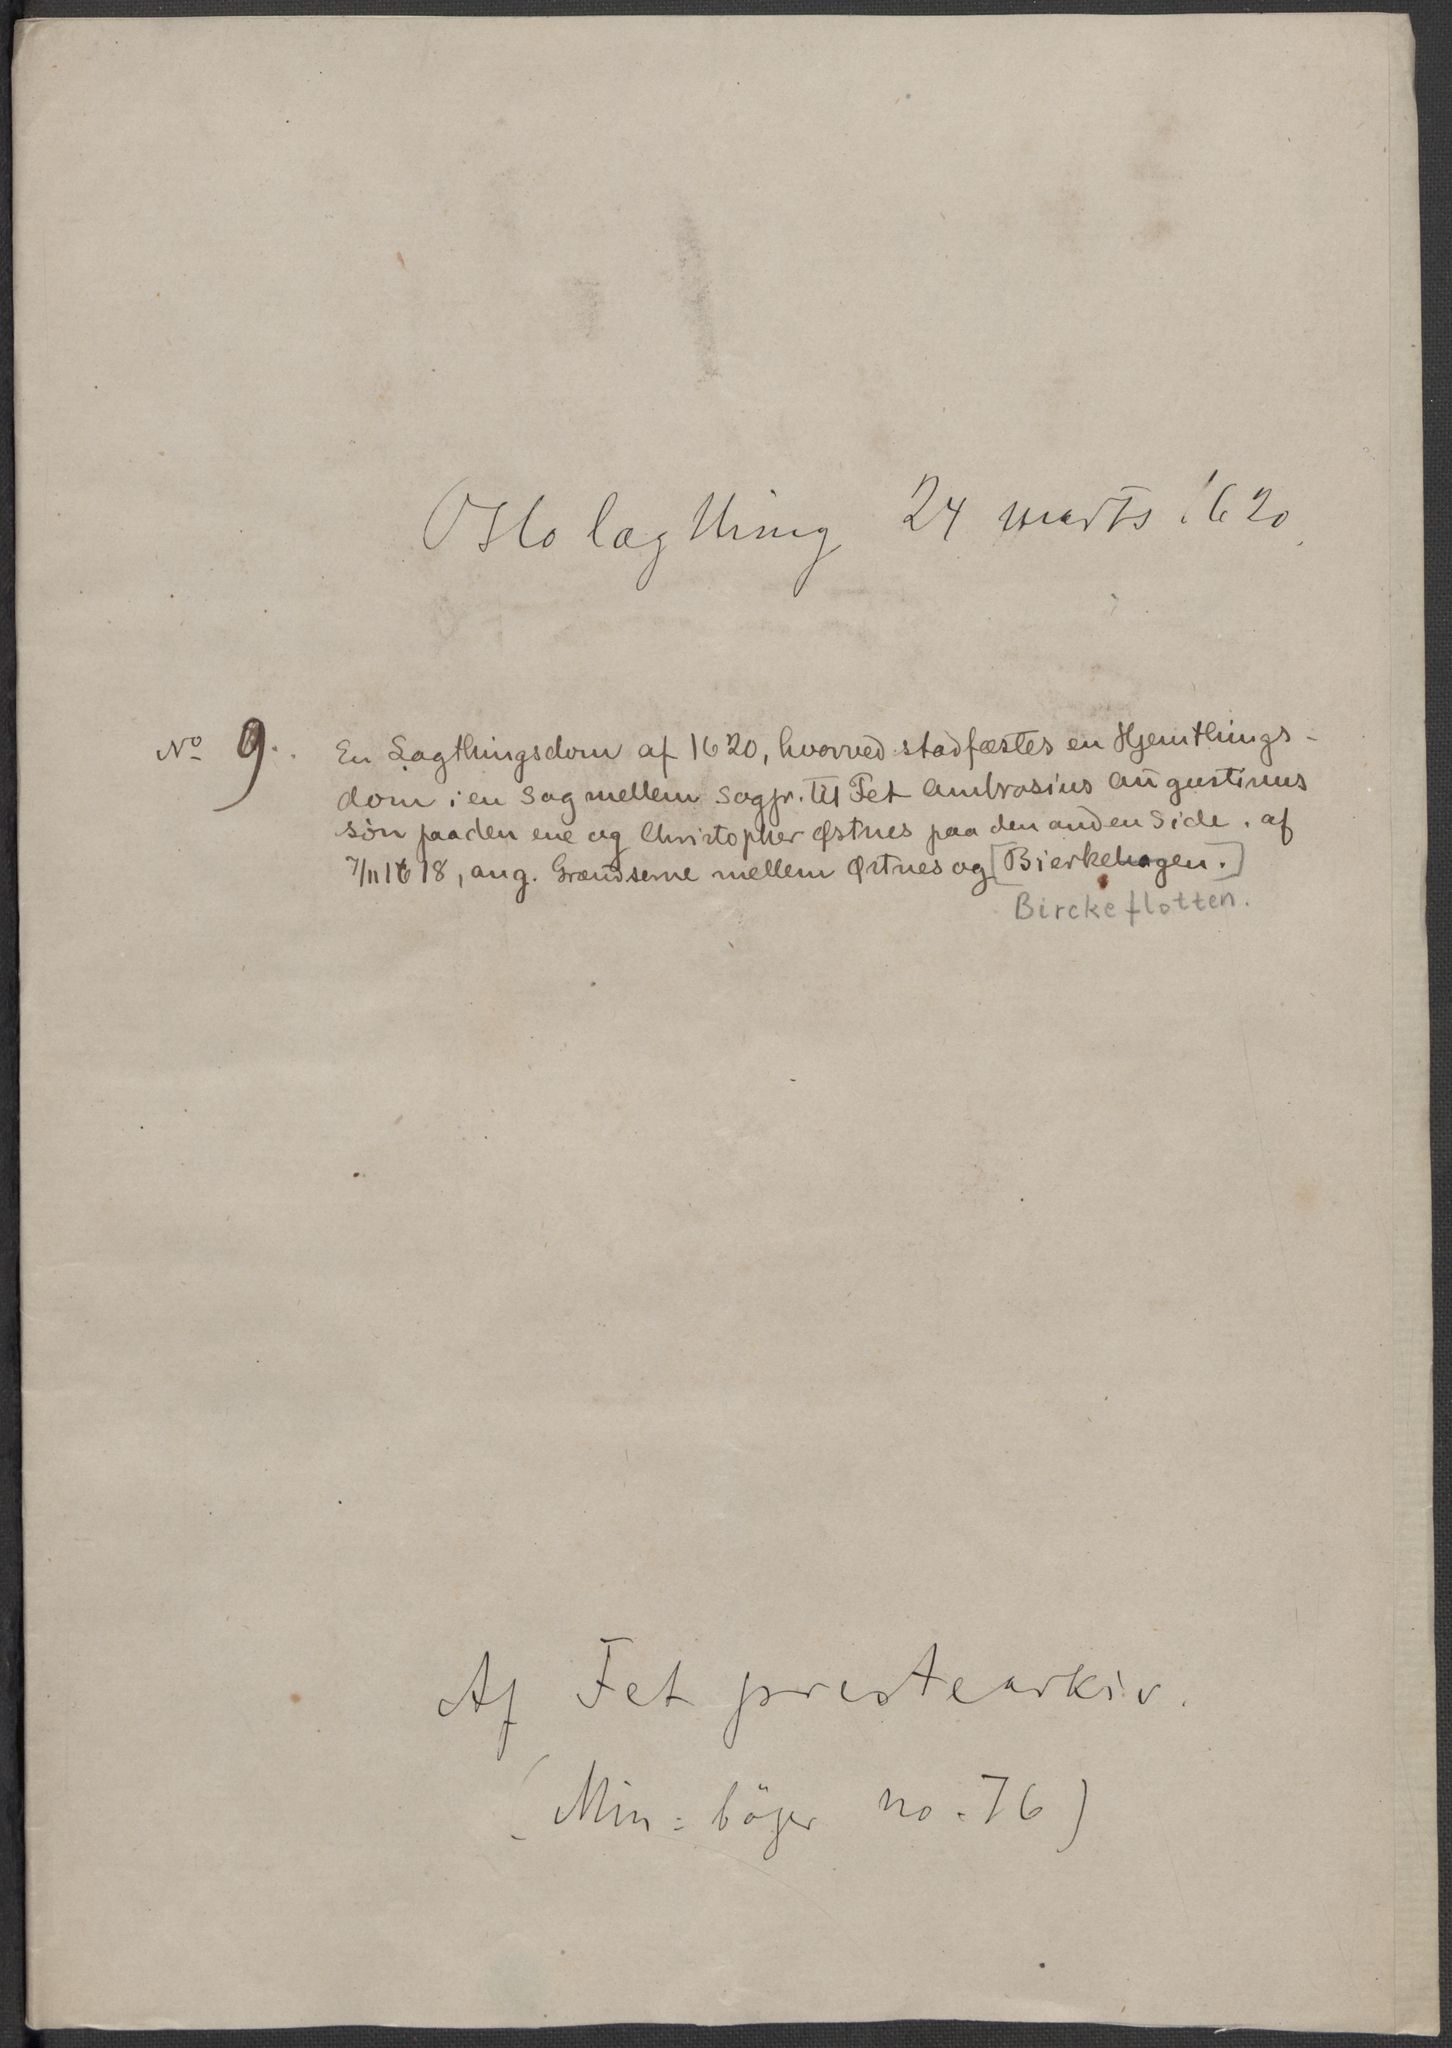 Oslo lagthing 24 marts 1620.
No 9. En Lagthingsdom af 1620, hvorved stadfæstes en Hjemthings-
dom i en Sag mellem Sogpr. til Fet Ambrosius Augustinus
sön paa den ene og Christopher Østnes paa den anden Side. af
7/11 1618, ang. Grændserne mellem Østnes og [Bierkehagen.]
Birckeflotten.
Af Fet prestearkiv.
(Min: böger no. 76)